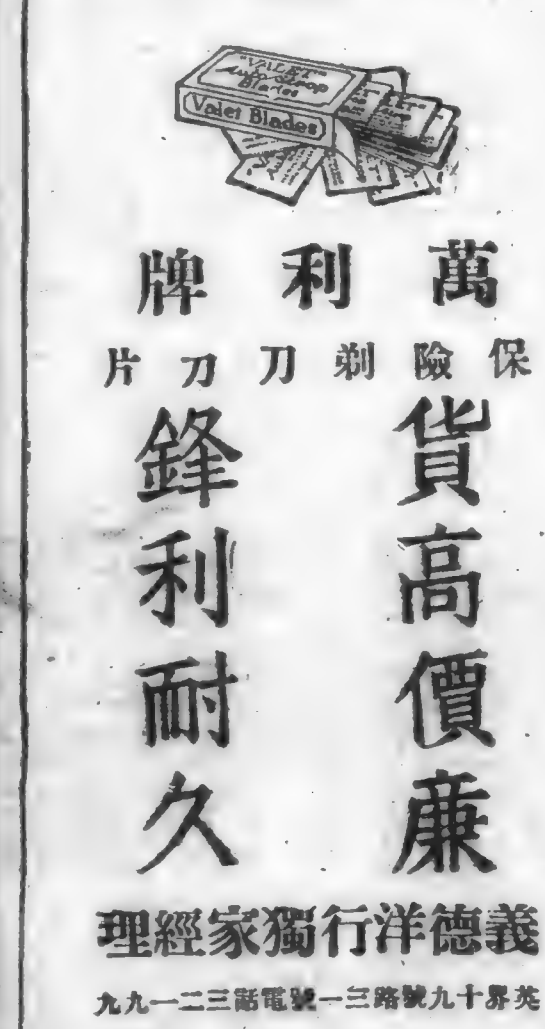 "VALET"
Auto-Strop
Blades
Valet Blades
萬利牌
保險剃刀刀片
貨高價廉
鋒利耐久
義德洋行獨家經理
英界十九號路三一號電話三二一九九